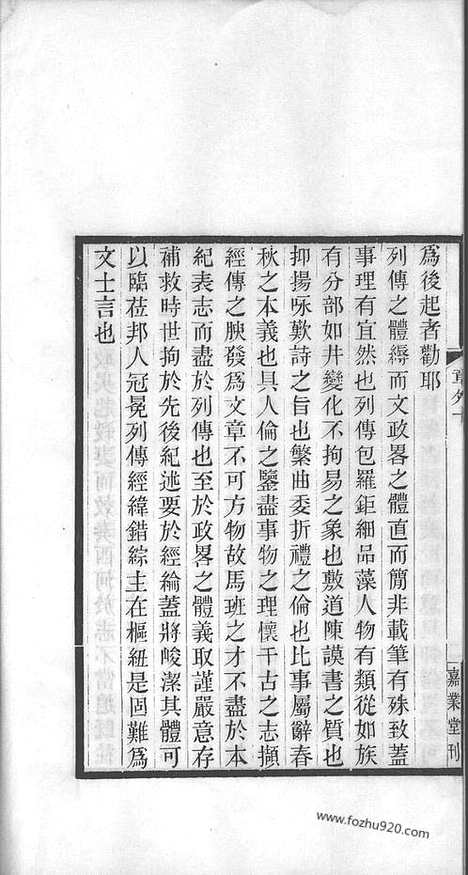 爲後起者勸耶
列傳之體縟而文政畧之體直而簡非載筆有殊致蓋
事理有宜然也列傳包羅鉅細品藻人物有類從如族
有分部如井變化不拘易之象也敷道陳謨書之質也
抑揚咏歎詩之旨也繁曲委折禮之倫也比事屬辭春
秋之本義也具人倫之鑒盡事物之理懷千古之志擷
經傳之腴發爲文章不可方物故馬班之才不盡於本
紀表志而盡於列傳也至於政畧之體義取謹嚴意存
補救時世拘於先後紀述要於經綸蓋將峻潔其體可
以臨莅邦人冠冕列傳經緯錯綜主在樞紐是固難爲
文士言也
嘉業堂刊
www.fozhu920.com